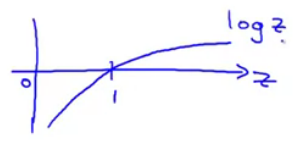 log z
0
1
z